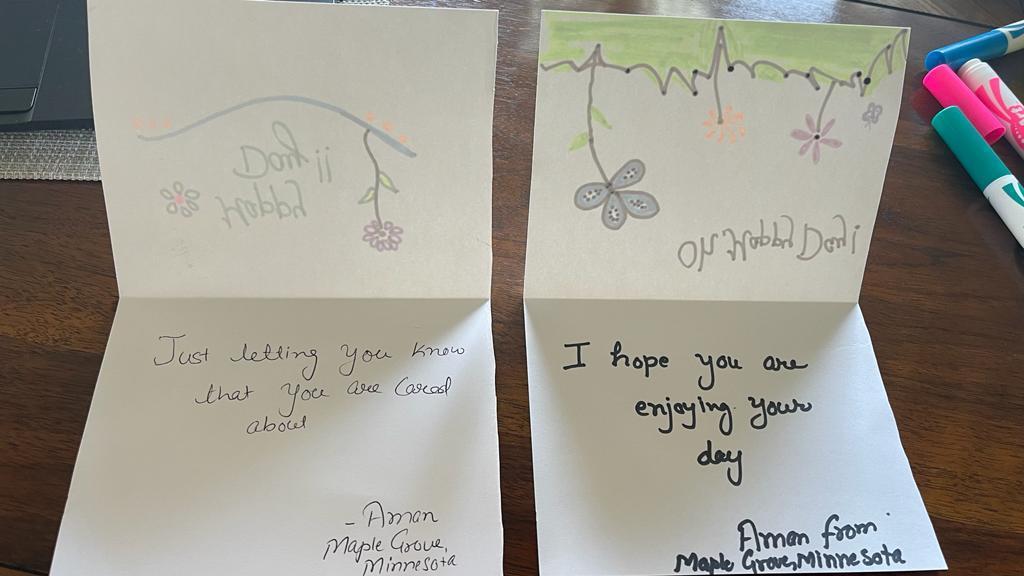 Happy
Day !!
Just letting you know
that you are cared
about
- Aman
Maple Grove,
Minnesota
Oh Happy Day!
I hope you are
enjoying your
day
Aman from
Maple Grove, Minnesota